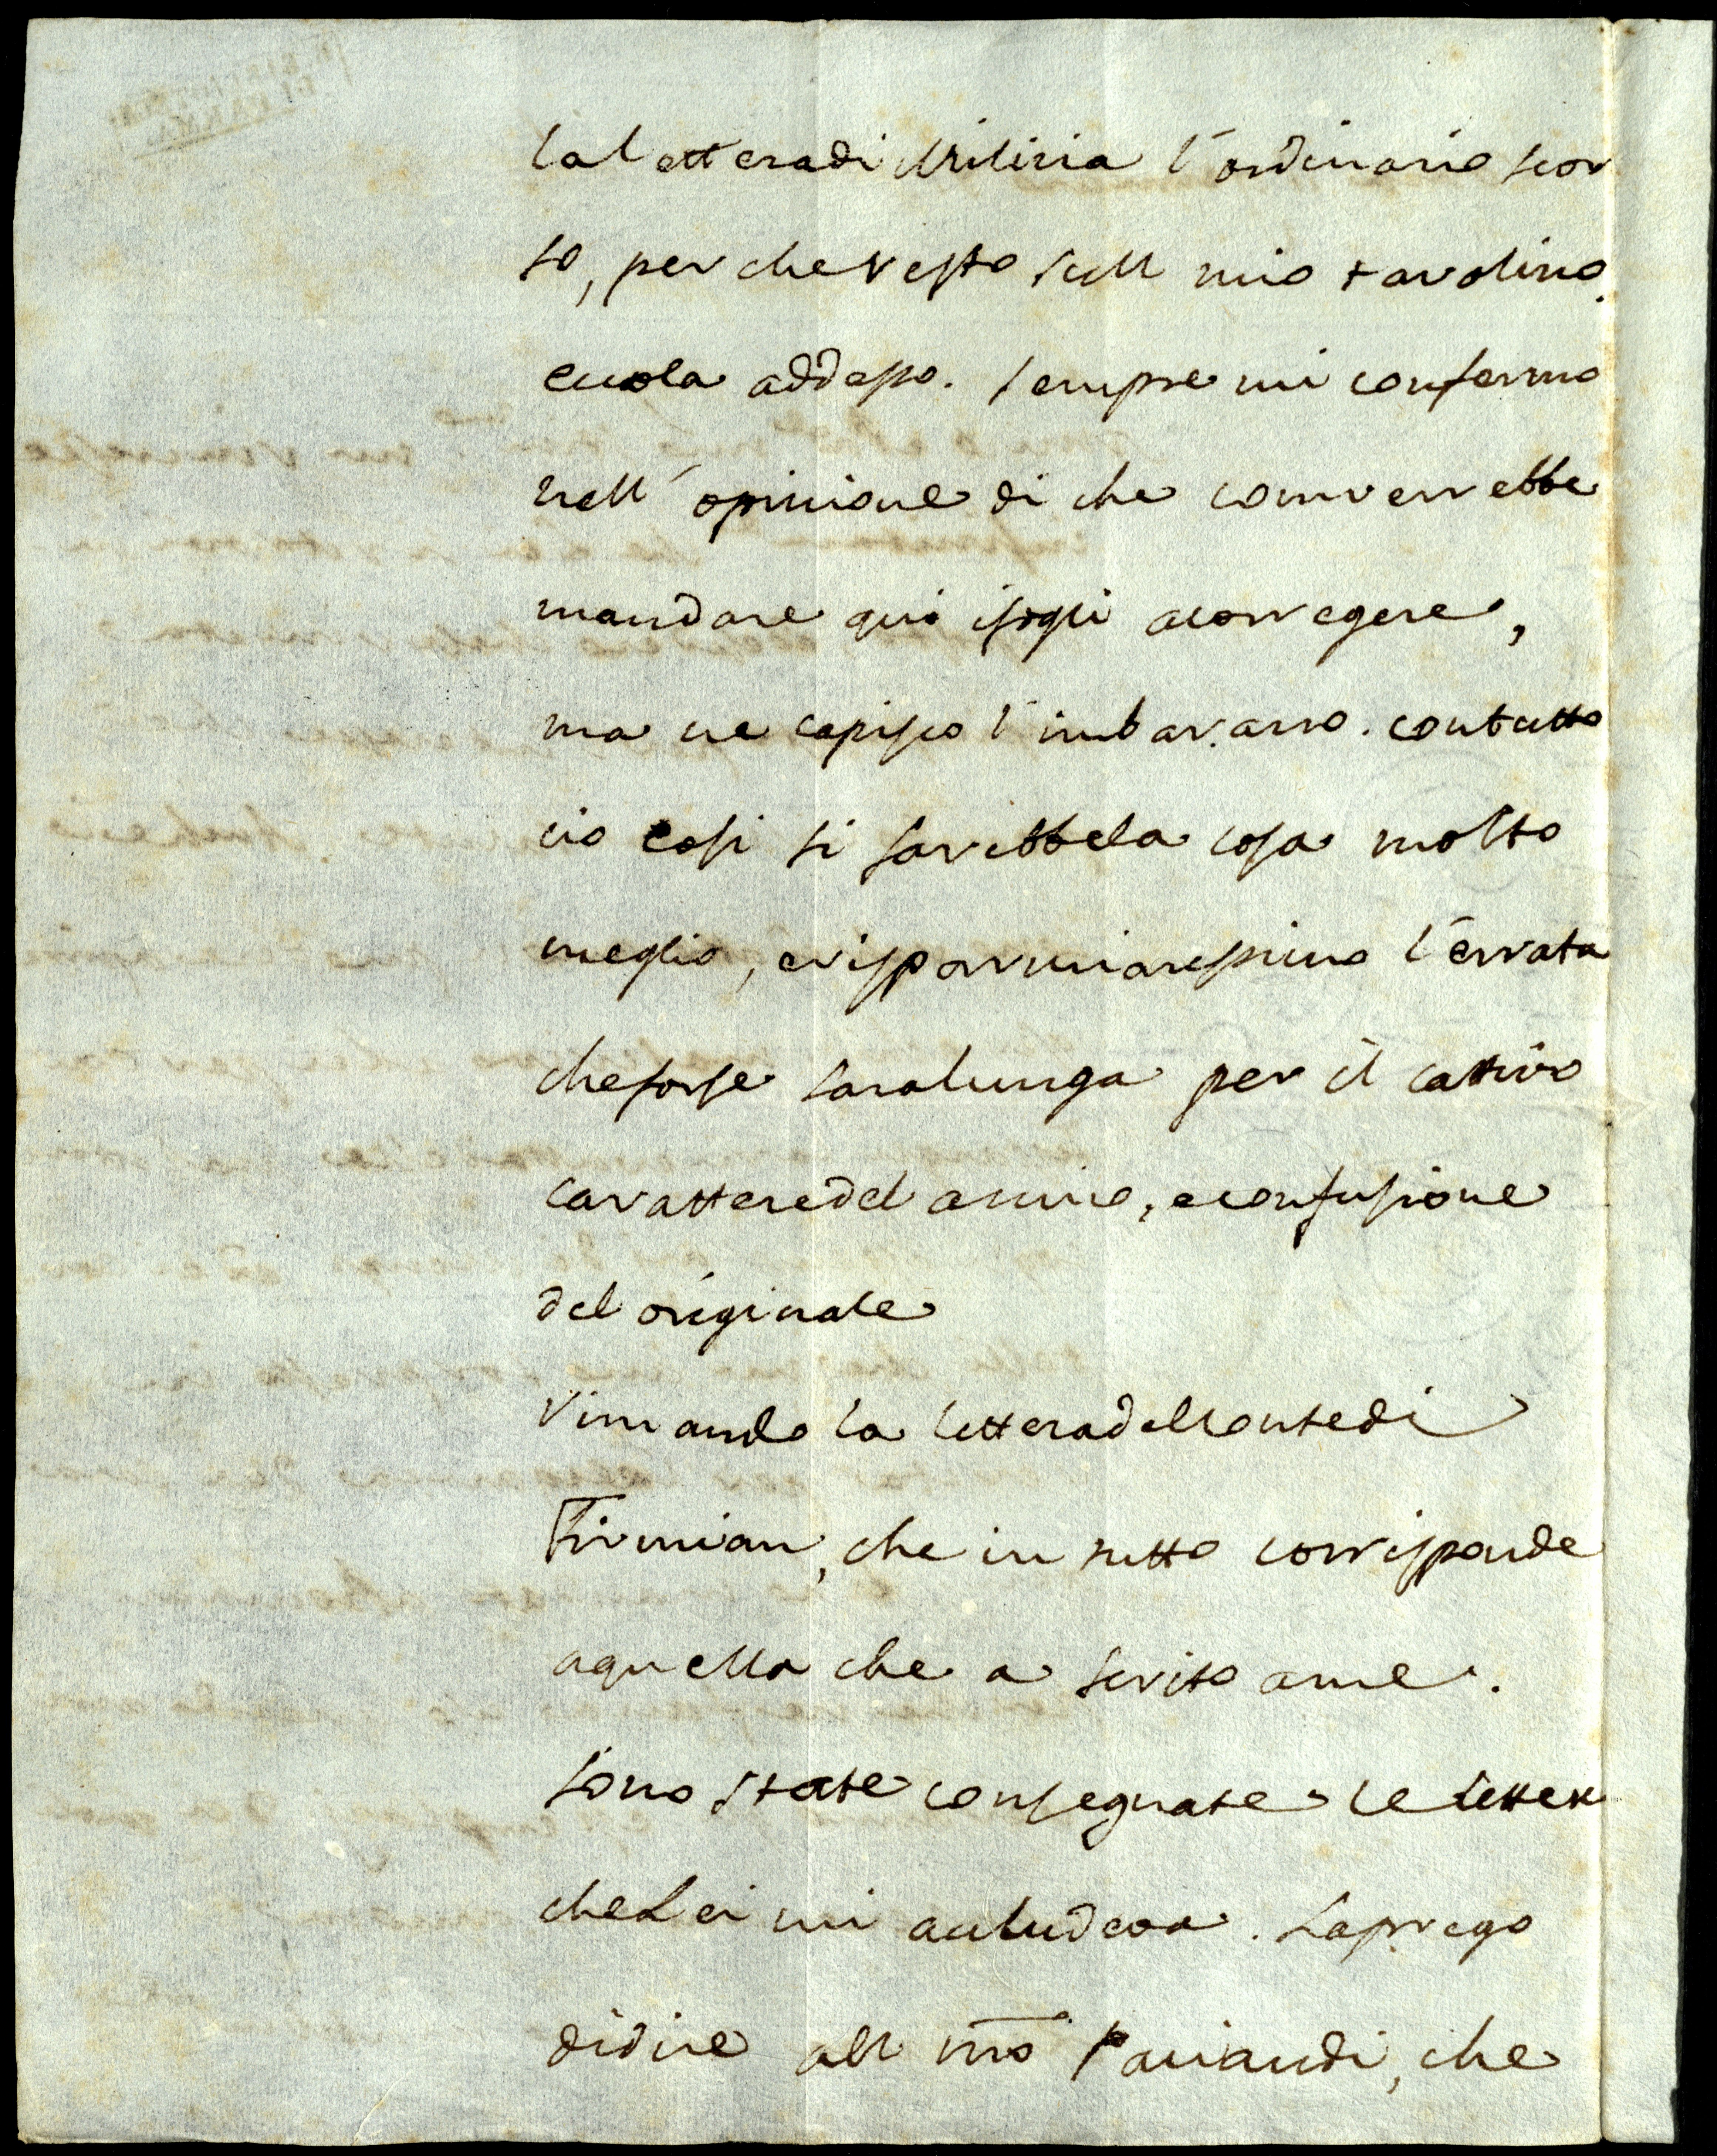 la letteradi Milizia l'ordinario scor
so, per che resto sull mio tavolino.
eccola addesso. sempre mi confermo
nell' opinione di che converrebbe
mandare qui i fogli acorregere,
ma ne capisco l'imbarazzo. contutto
cio cosi si farebbela cosa molto
meglio, erisparmiaressimo l'errata
cheforse saralunga per il cattivo
carattere del amico, e confusione
del originale
Rimando la letteradelConte di
Firmian, che in tutto corrisponde
aquella che a scrito ame.
sono state consegnate le lettere
che Lei mi acludeva. La prego
didire all mo, che